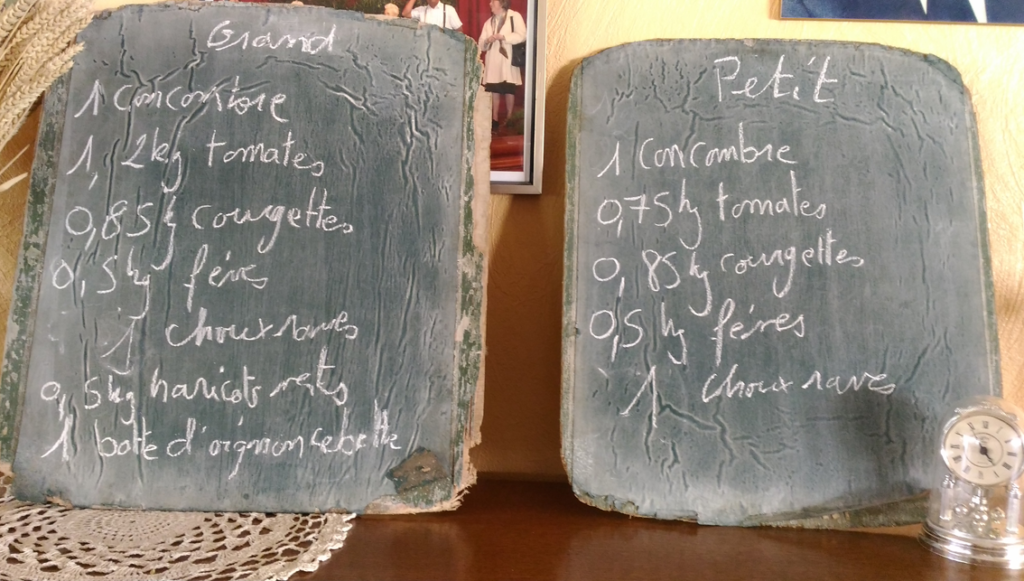 Grand
1 concombre
1,2kg tomates
0,85kg courgettes
0,5kg féves
1 chouxraves
0,5kg haricots verts
1 botte d'oignon cebette
Petit
1 concombre
0,75kg tomates
0,85kg courgettes
0,5kg féves
1 choux raves